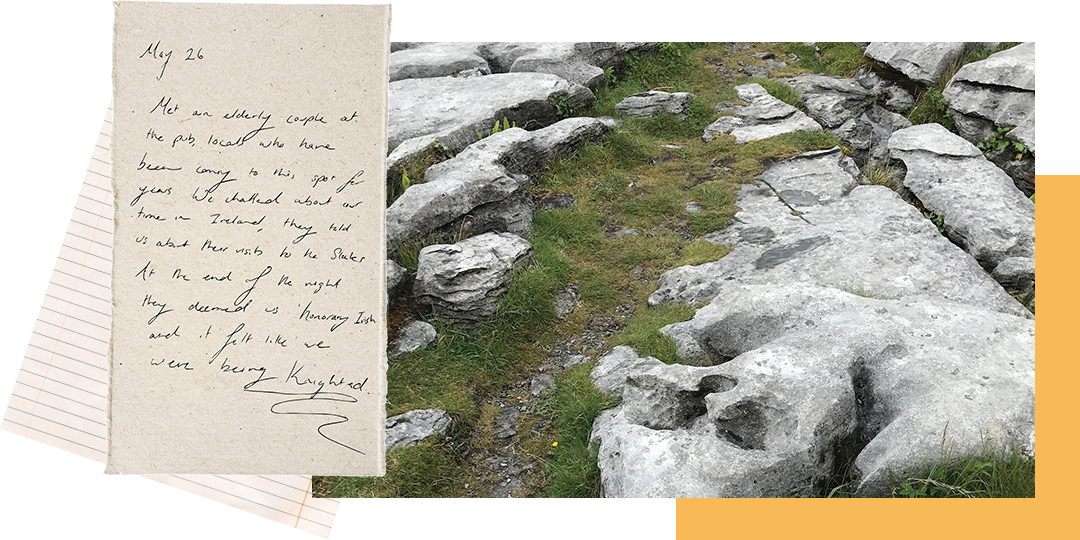 May 26
Met an elderly couple at
the pub, locals who have
been coming to this spot for
years. We chatted about our
time in Ireland, they told
us about their visits to the States
At the end of the night
they deemed us 'honorary Irish'
and it felt like we
were being Knighted.